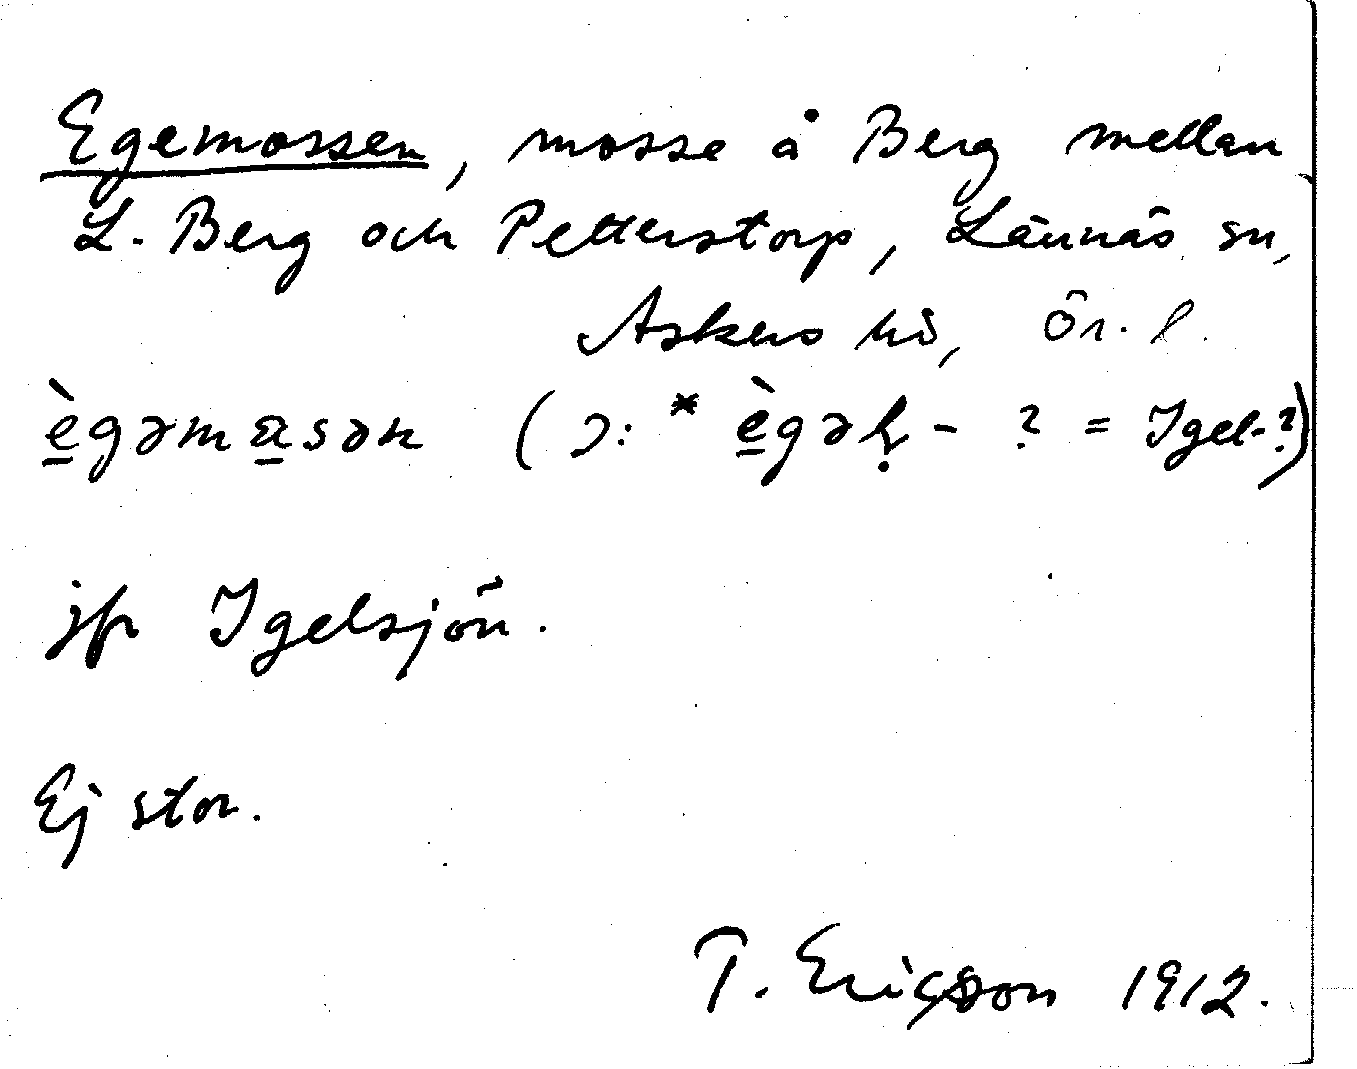 Egemossen, mosse å Berg mellan
L. Berg och Petterstorp, Lännäs sn,
Askers hd, Ör. l.
ègəmɑsən (ɔ: * ègəḷ - ? = Igel-?)
jfr Igelsjön.
Ej stor.
T. Ericsson 1912.